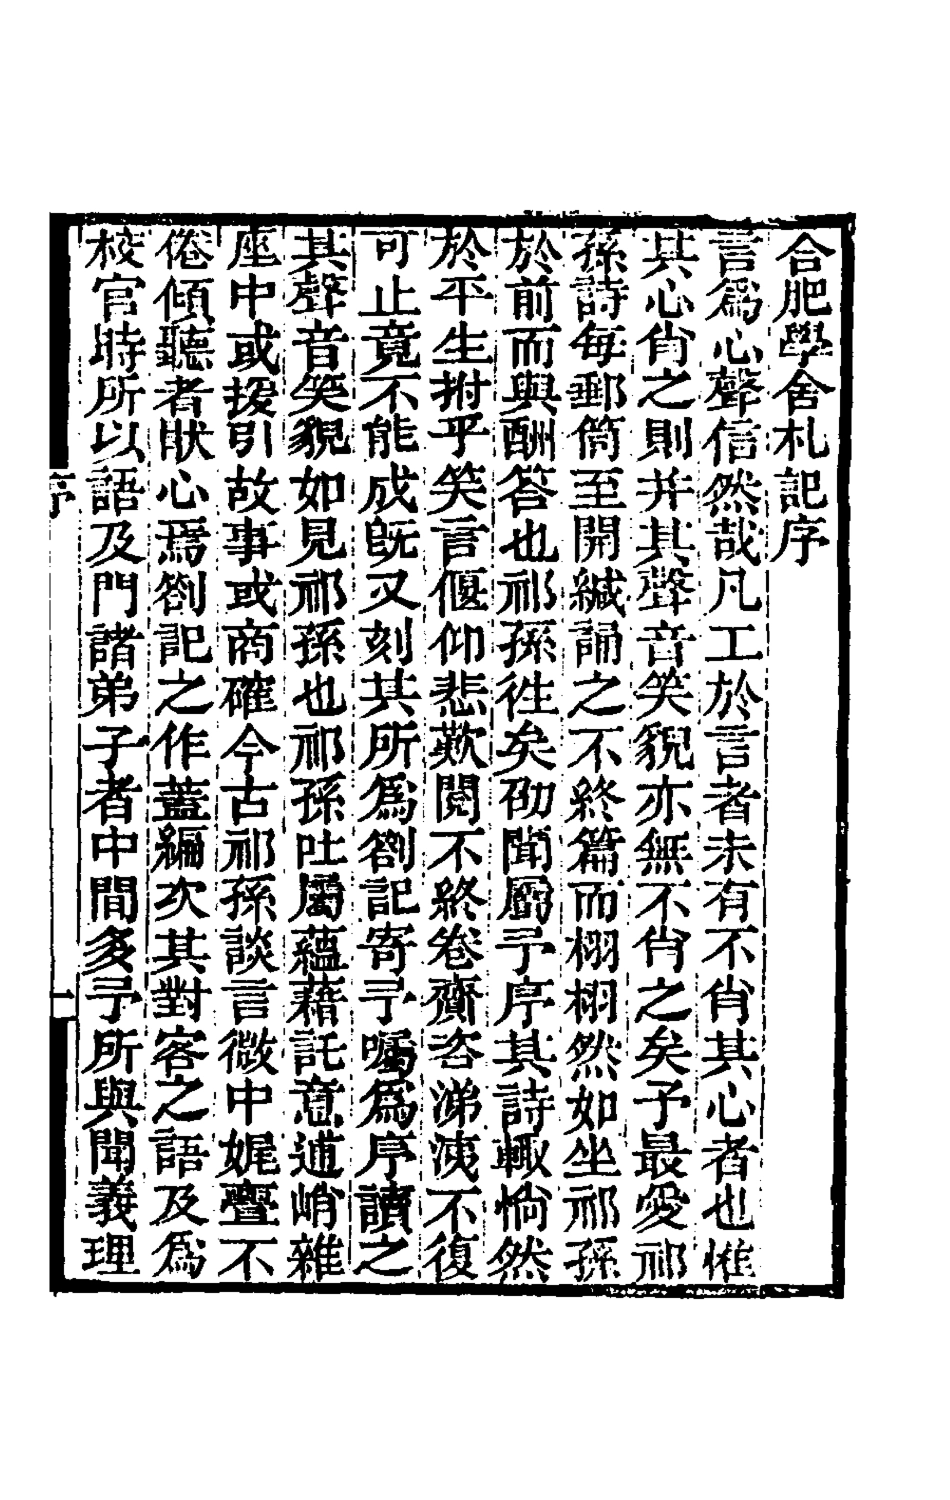 合肥學舍札記序
言爲心聲信然哉凡工於言者未有不肖其心者也惟
其心肖之則并其聲音笑貌亦無不肖之矣予最愛祁
孫詩每郵筒至開緘誦之不終篇而栩栩然如坐祁孫
於前而與酬答也祁孫徃矣劭聞屬予序其詩輙惝然
於平生拊乎笑言偃仰悲歎閱不終卷齎咨涕洟不復
可止竟不能成旣又刻其所爲劄記寄予囑爲序讀之
其聲音笑貌如見祁孫也祁孫吐屬蘊藉託意逋峭雜
座中或援引故事或商確今古祁孫談言微中娓亹不
倦傾聽者猒心焉劄記之作蓋編次其對客之語及爲
校官時所以語及門諸弟子者中間多予所與聞義理
序
一